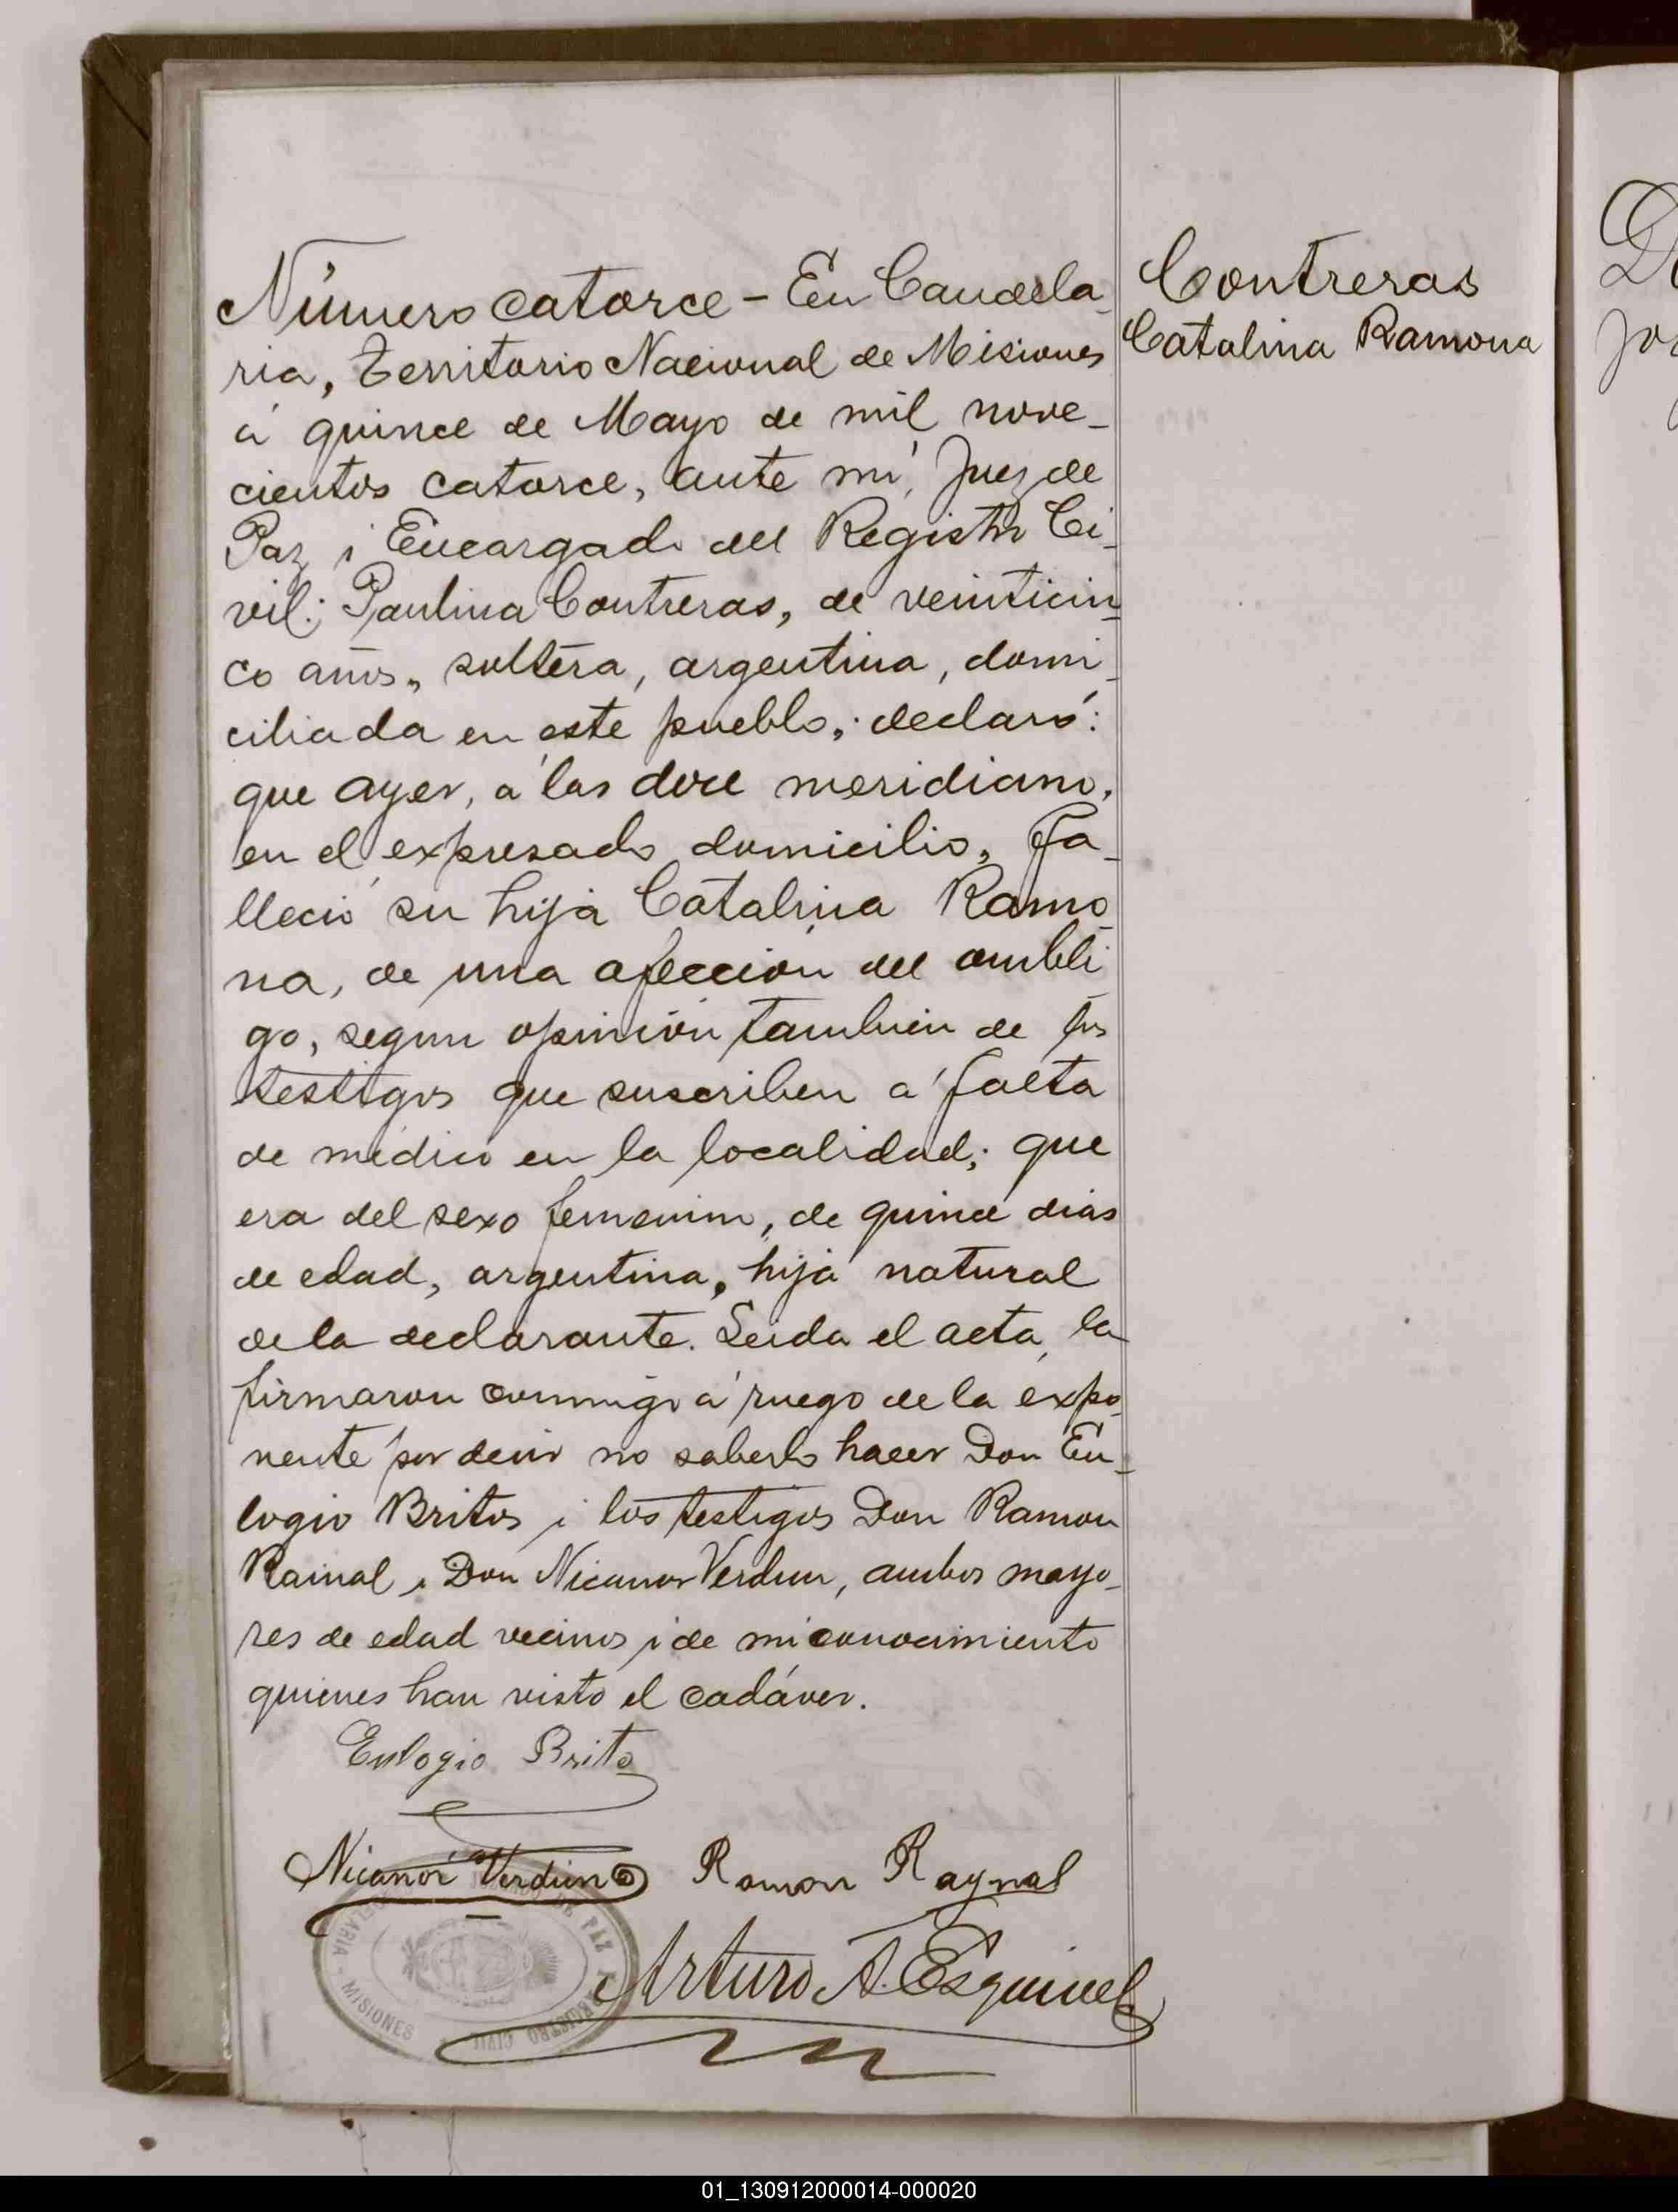 Número catorce - En Candela-
ria, Territorio Nacional de Misiones
á quince de Mayo de mil nove-
cientos catorce, ante mí, Juez de
Paz i Encargado del Registro Ci-
vil: Paulina Contreras, de veinticin-
co años, soltera, argentina, domi-
ciliada en este pueblo; declaró:
que ayer, á las doce meridiano,
en el expresado domicilio, fa-
lleció su hija Catalina Ramo-
na, de una afección del ombli-
go, segun opinión tambien de los
testigos que suscriben á falta
de médico en la localidad; que
era del sexo femenino, de quince dias
de edad, argentina, hija natural
de la declarante. Leida el acta, la
firmaron conmigo á ruego de la expo-
nente por decir no saberlo hacer Don Eu-
logio Britos i los testigos Don Ramon
Rainal i Don Nicanor Verdun, ambos mayo-
res de edad vecinos i de mi conocimiento
quienes han visto el cadáver.
Eulogio Brito
Nicanor Verdun Ramon Raynal
Arturo A. Esquivel
Contreras
Catalina Ramona
JUZGADO DE PAZ Y REGISTRO CIVIL
CANDELARIA - MISIONES
01_130912000014-000020